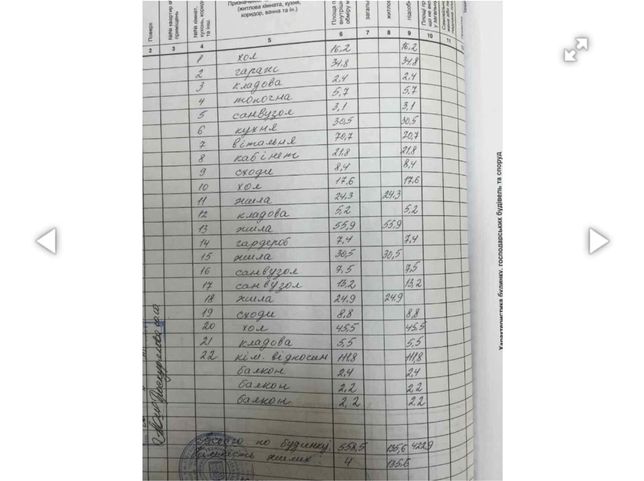 Призначення
(житлова кімната, кухня,
коридор, ванна та ін.)
Поверх
2 3 4 5 6 7 8 9 10 11
1 хол 16,2 16,2
2 гараж 34,8 34,8
3 кладова 2,4 2,4
4 топочна 5,7 5,7
5 санвузол 3,1 3,1
6 кухня 30,5 30,5
7 вітальня 70,7 70,7
8 кабінет 21,8 21,8
9 сходи 8,4 8,4
10 хол 17,6 17,6
11 жила 24,3 24,3
12 кладова 5,2 5,2
13 жила 55,9 55,9
14 гардероб 7,4 7,4
15 жила 30,5 30,5
16 санвузол 7,5 7,5
17 санвузол 13,2 13,2
18 жила 24,9 24,9
19 сходи 8,8 8,8
20 хол 45,5 45,5
21 кладова 5,5 5,5
22 кім. відпочин 111,8 111,8
балкон 2,4 2,4
балкон 2,2 2,2
балкон 2,2 2,2
Всього по будинку 558,5 135,6 422,9
кількість жилих 4 135,6
Характеристика будинку, господарських будівель та споруд